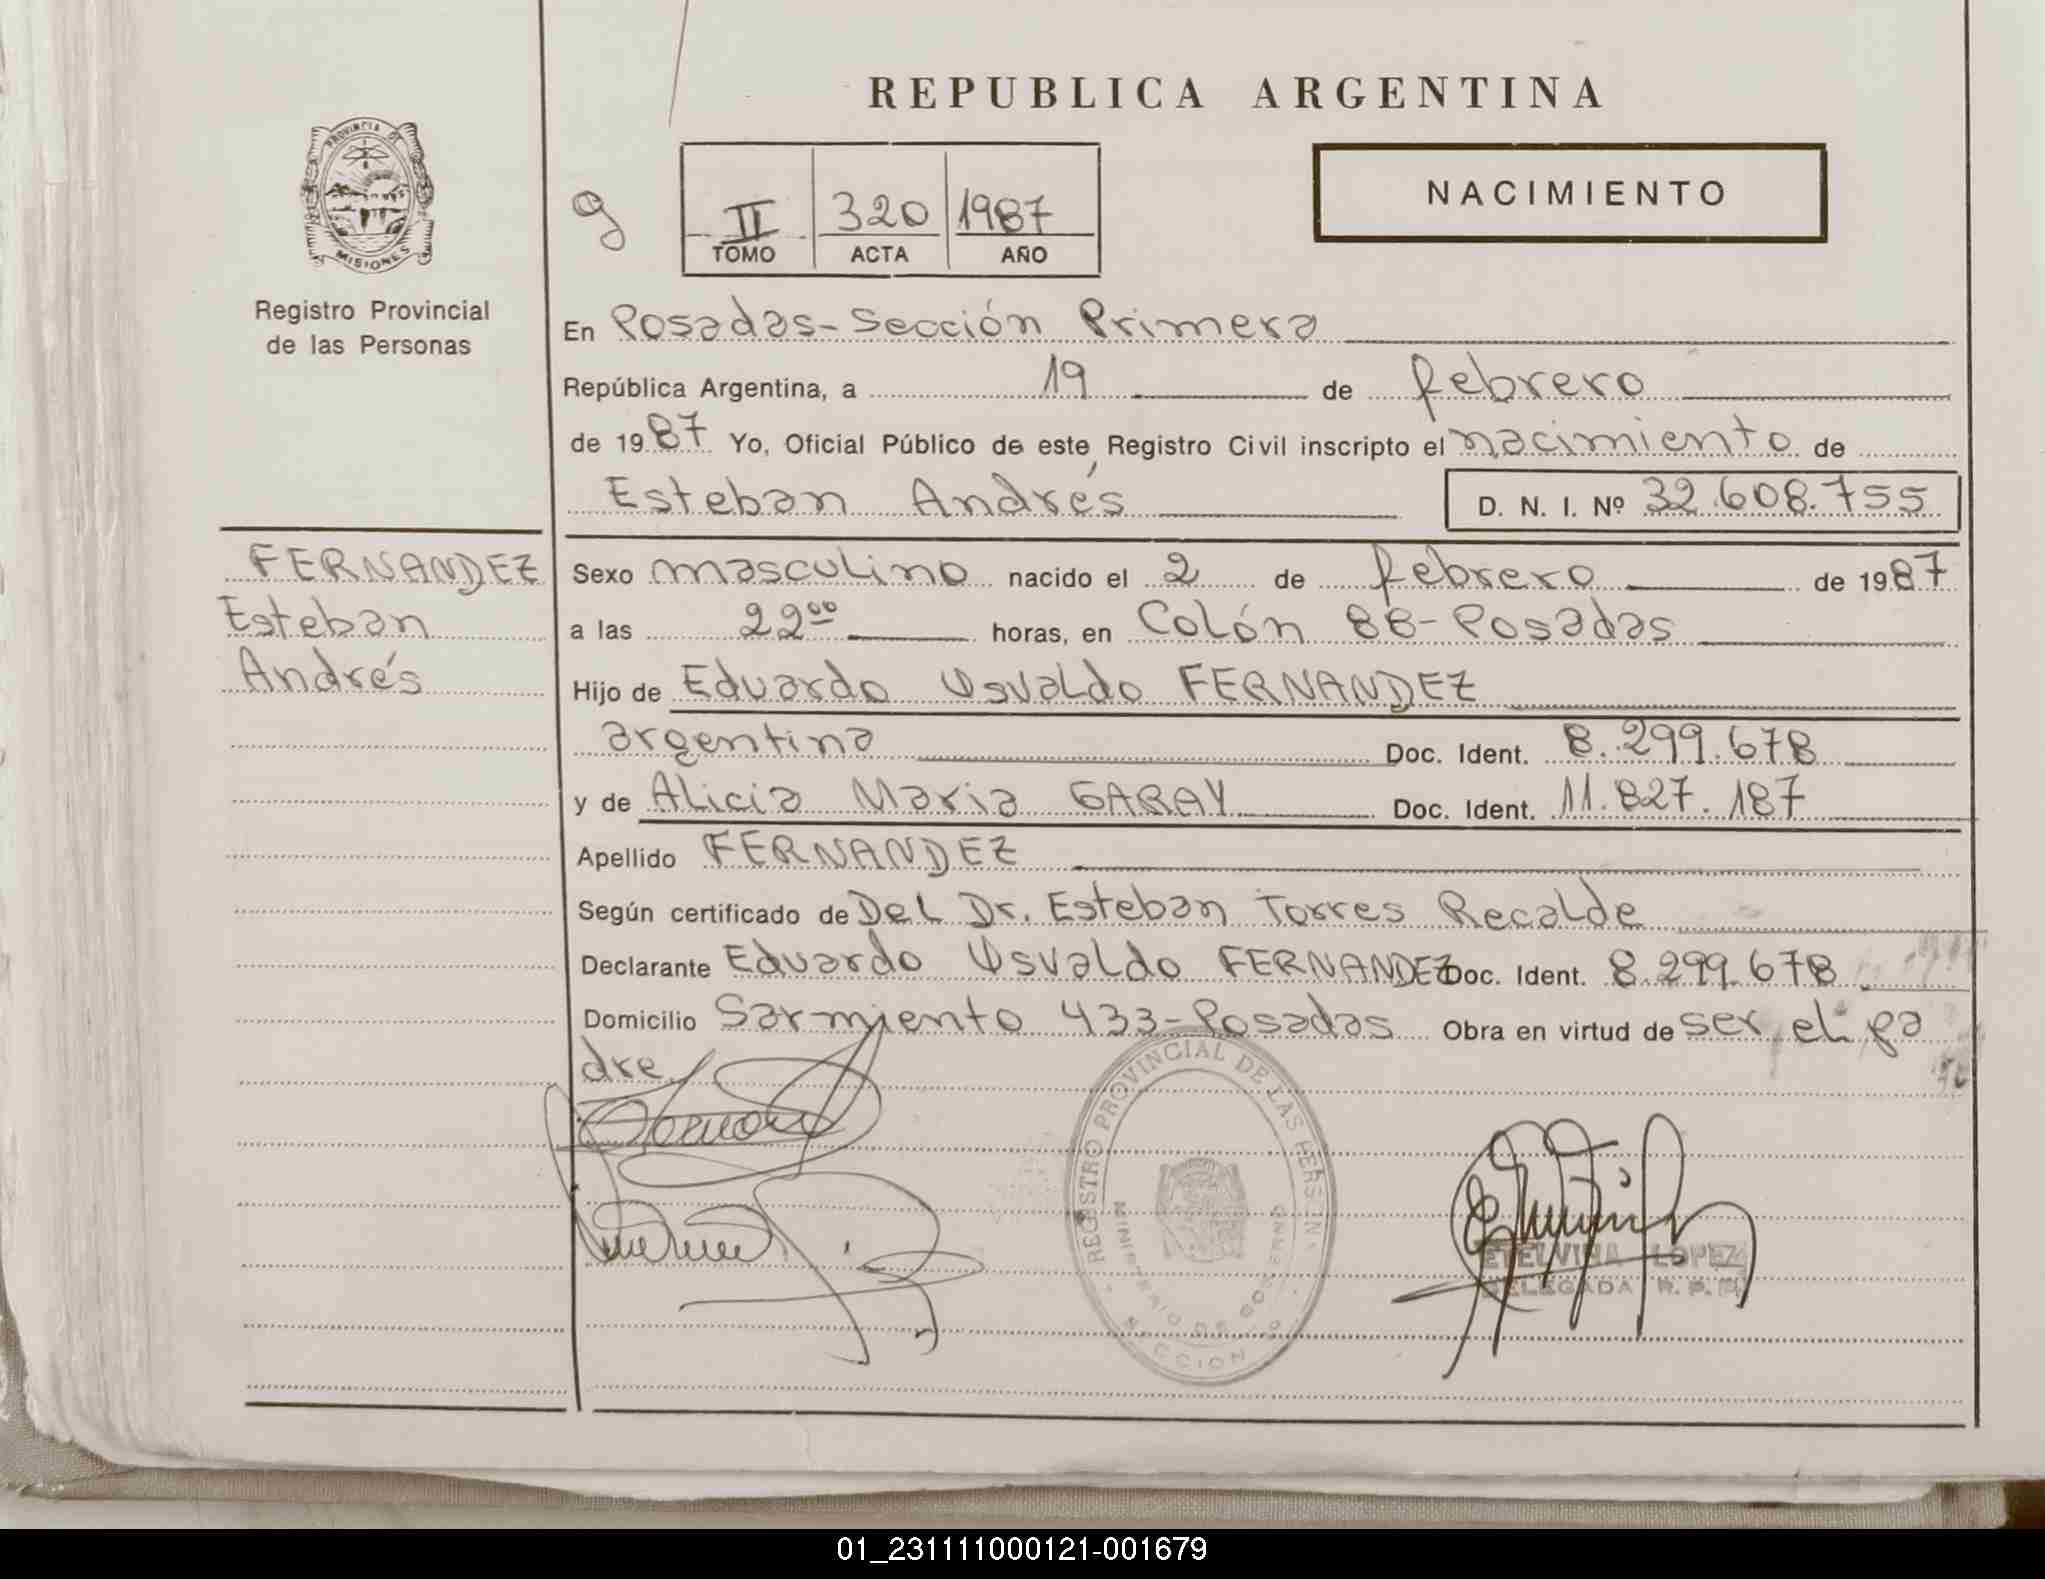 REPUBLICA ARGENTINA
PROVINCIA DE MISIONES
Registro Provincial
de las Personas
g
II 320 1987
TOMO ACTA AÑO
NACIMIENTO
En Posadas-Sección Primera
República Argentina, a 19 de febrero
de 1987 Yo, Oficial Público de este Registro Civil inscripto el nacimiento de
Esteban Andrés D. N. I. Nº 32.608.755
FERNANDEZ
Esteban
Andrés
Sexo masculino nacido el 2 de febrero de 1987
a las 22⁰⁰ horas, en Colón 88-Posadas
Hijo de Eduardo Osvaldo FERNANDEZ
argentina Doc. Ident. 8.299.678
y de Alicia Maria GARAY Doc. Ident. 11.827.187
Apellido FERNANDEZ
Según certificado de Del Dr. Esteban Torres Recalde
Declarante Eduardo Osvaldo FERNANDEZ Doc. Ident. 8.299.678
Domicilio Sarmiento 433-Posadas Obra en virtud de ser el pa
dre
REGISTRO PROVINCIAL DE LAS PERSONAS
MINISTERIO DE GOBIERNO
SECCION
ETELVINA LOPEZ
DELEGADA R. P. P.
01_231111000121-001679